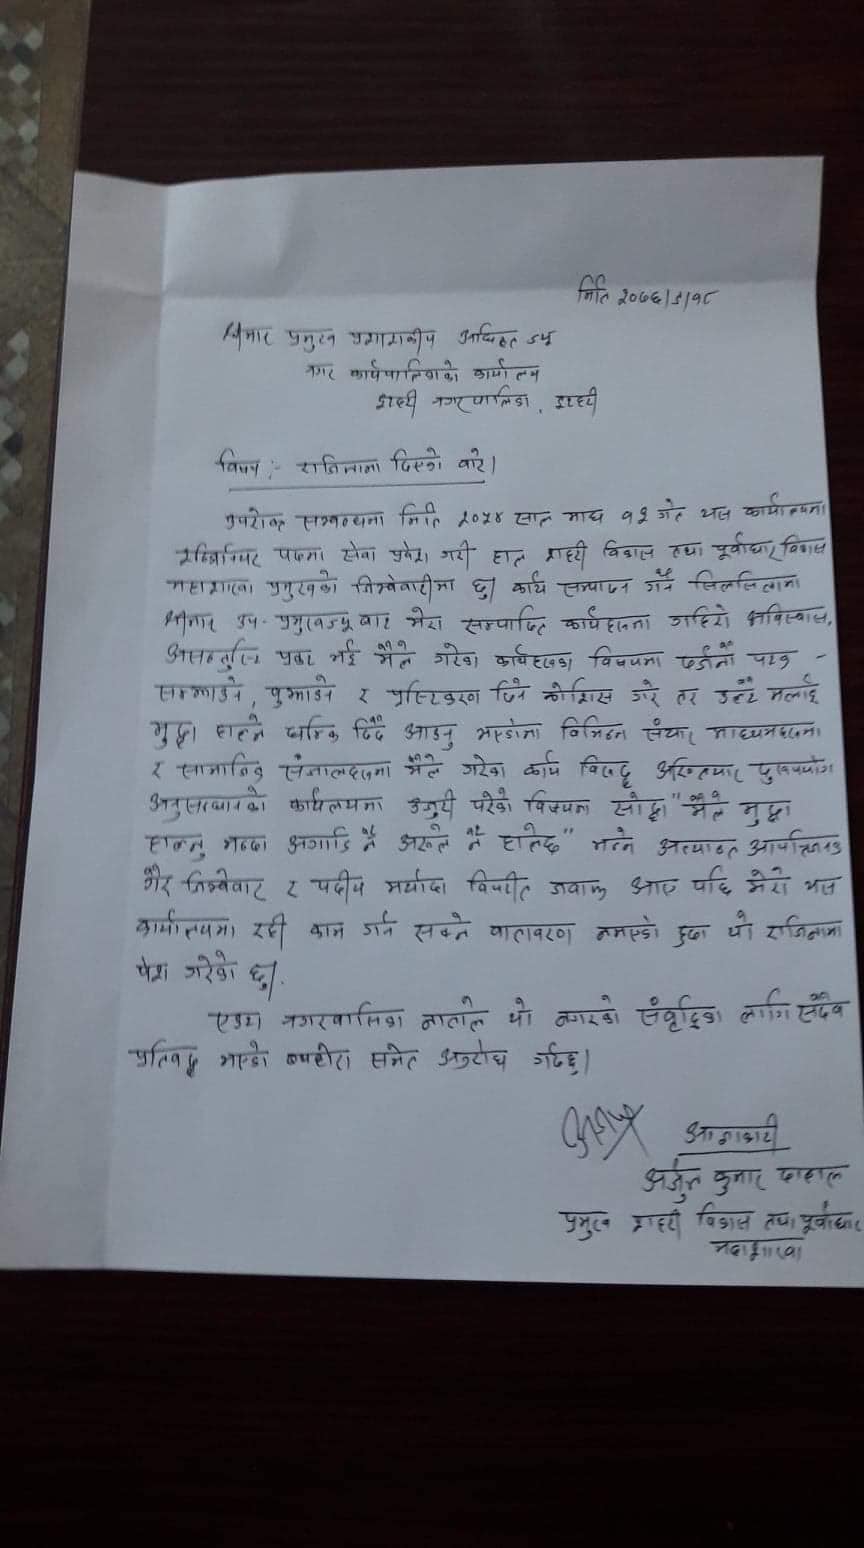 मिति २०७६/९/१८
श्रीमान प्रमुख प्रशासकीय अधिकृत ज्यू
नगर कार्यपालिकाको कार्यालय
इटहरी नगरपालिका, इटहरी
विषय :- राजिनामा दिएको बारे।
उपरोक्त सम्बन्धमा मिति २०५४ साल माघ १२ गते यस कार्यालयमा
ईन्जिनियर पदमा सेवा प्रवेश गरी हाल शहरी विकास तथा पूर्वाधार विकास
महाशाखा प्रमुखको जिम्मेवारीमा छु। कार्य सम्पादन गर्ने सिलसिलामा
श्रीमान उप-प्रमुखज्यू बाट मेरा सम्पादित कार्यहरुमा गहिरो अविश्वास,
असन्तुष्टि प्रकट भई मैले गरेका कार्यहरुका विषयमा दर्जनौं पटक -
सम्झाउने, बुझाउने र प्रस्टिकरण दिने कोशिस गरे तर उल्टै मलाई
मुद्दा हाल्ने धम्कि दिँदै आउनु भएकोमा विभिन्न संचार माध्यमहरुमा
र सामाजिक संजालहरुमा मैले गरेका कार्य विरुद्ध अख्तियार दुरुपयोग
अनुसन्धानको कार्यलयमा उजुरी परेको विषयमा सोद्धा "मैले मुद्दा
हाल्नु भन्दा अगाडि नै अरुले नै हालेछ" भन्ने अत्यान्त आपत्तिजनक
गैर जिम्मेवार र पदीय मर्यादा विपरीत जवाफ आए पछि मेरो यस
कार्यालयमा रही काम गर्न सक्ने वातावरण नभएको हुदा यो राजिनामा
पेश गरेको छु।
एउटा नगरवासिका नाताले यो नगरको संवृद्धिका लागि सँदैव
प्रतिवद्ध भएको व्यहोरा समेत अनुरोध गर्दछु।
आज्ञाकारी
अर्जुन कुमार दाहाल
प्रमुख शहरी विकास तथा पूर्वाधार
महाशाखा